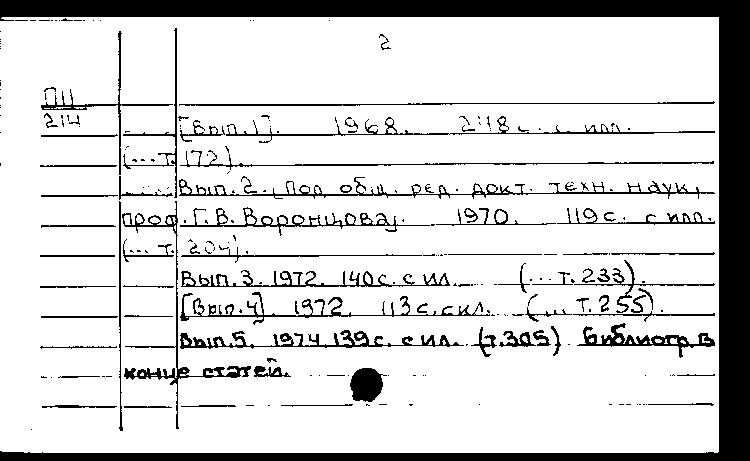 2
ПЦ
214
.... [Вып.1]. 1968. 248 с. с илл.
(...т.172).
.... Вып.2. [Под общ. ред. докт. техн. наук,
проф. Г.В. Воронцова]. 1970. 119 с. с илл.
(... т. 204).
Вып.3. 1972. 140 с. с ил. (... т.233).
[Вып.4]. 1972. 113 с. с ил. (... т.255).
Вып.5. 1974. 139 с. с ил. (т.305) Библиогр. в
конце статей.